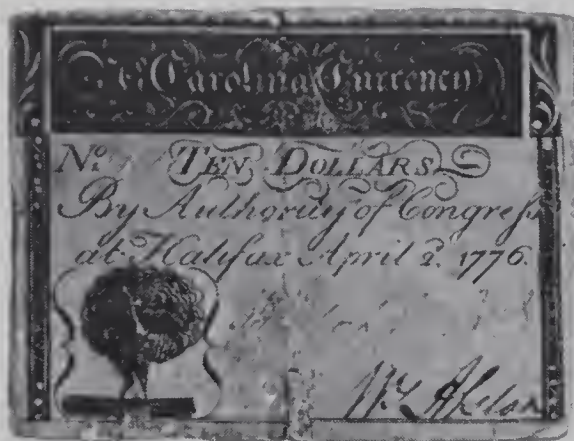 Nº Carolina Currency
Nº TEN DOLLARS
By Authority of Congress
at Halifax April 2. 1776.